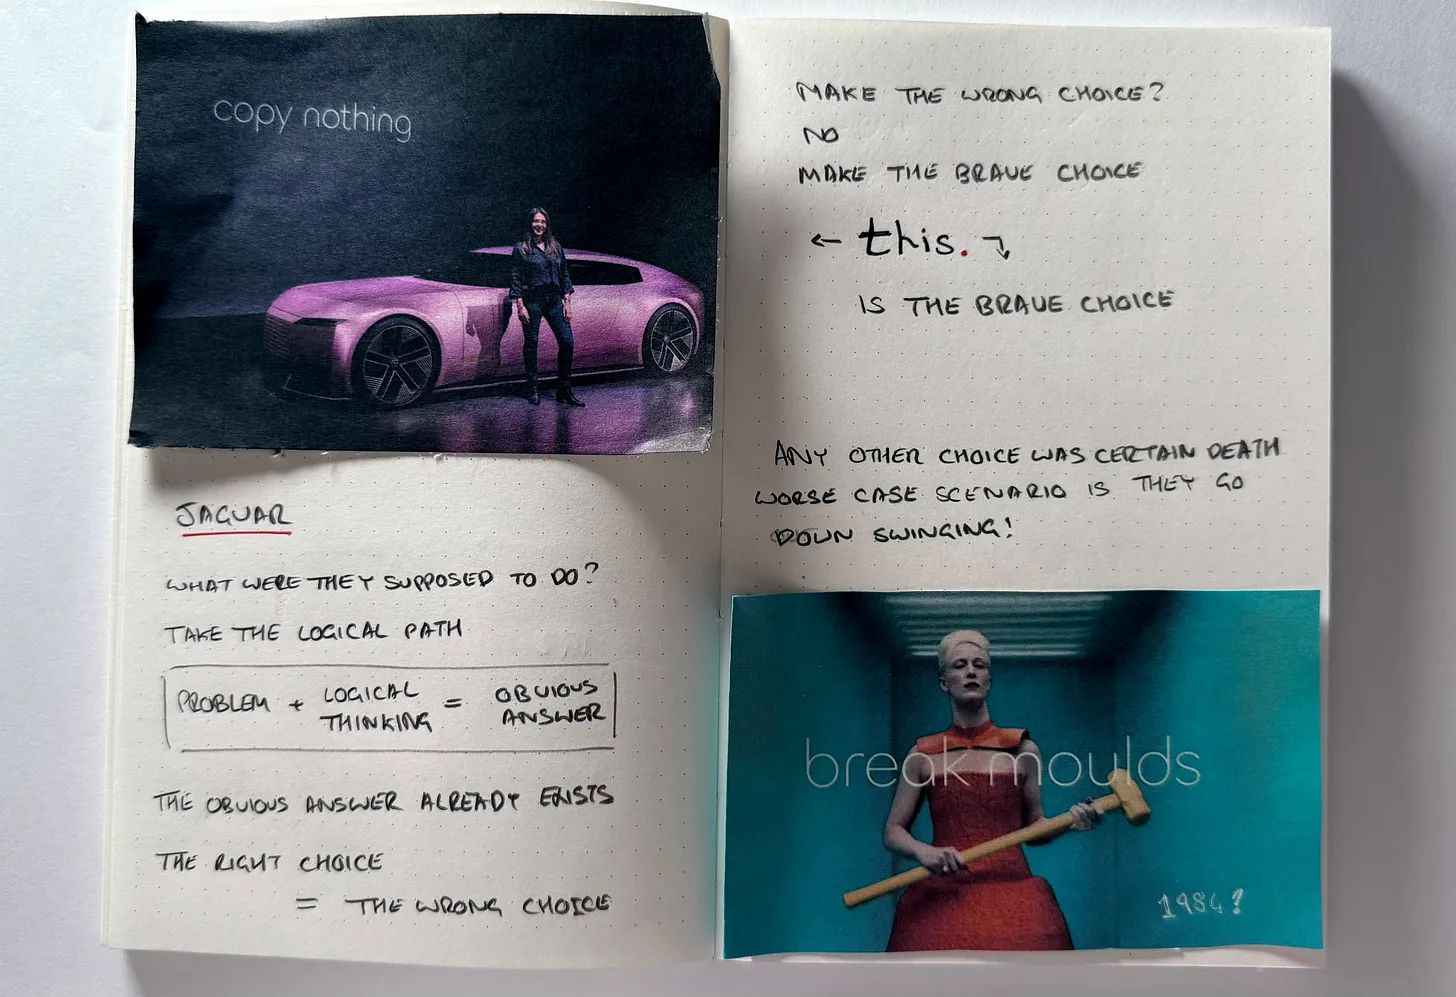 copy nothing
JAGUAR
WHAT WERE THEY SUPPOSED TO DO?
TAKE THE LOGICAL PATH
PROBLEM + LOGICAL THINKING = OBVIOUS ANSWER
THE OBVIOUS ANSWER ALREADY EXISTS
THE RIGHT CHOICE
= THE WRONG CHOICE
MAKE THE WRONG CHOICE?
NO
MAKE THE BRAVE CHOICE
← this. ↴
IS THE BRAVE CHOICE
ANY OTHER CHOICE WAS CERTAIN DEATH
WORSE CASE SCENARIO IS THEY GO
DOWN SWINGING!
break moulds
1984?